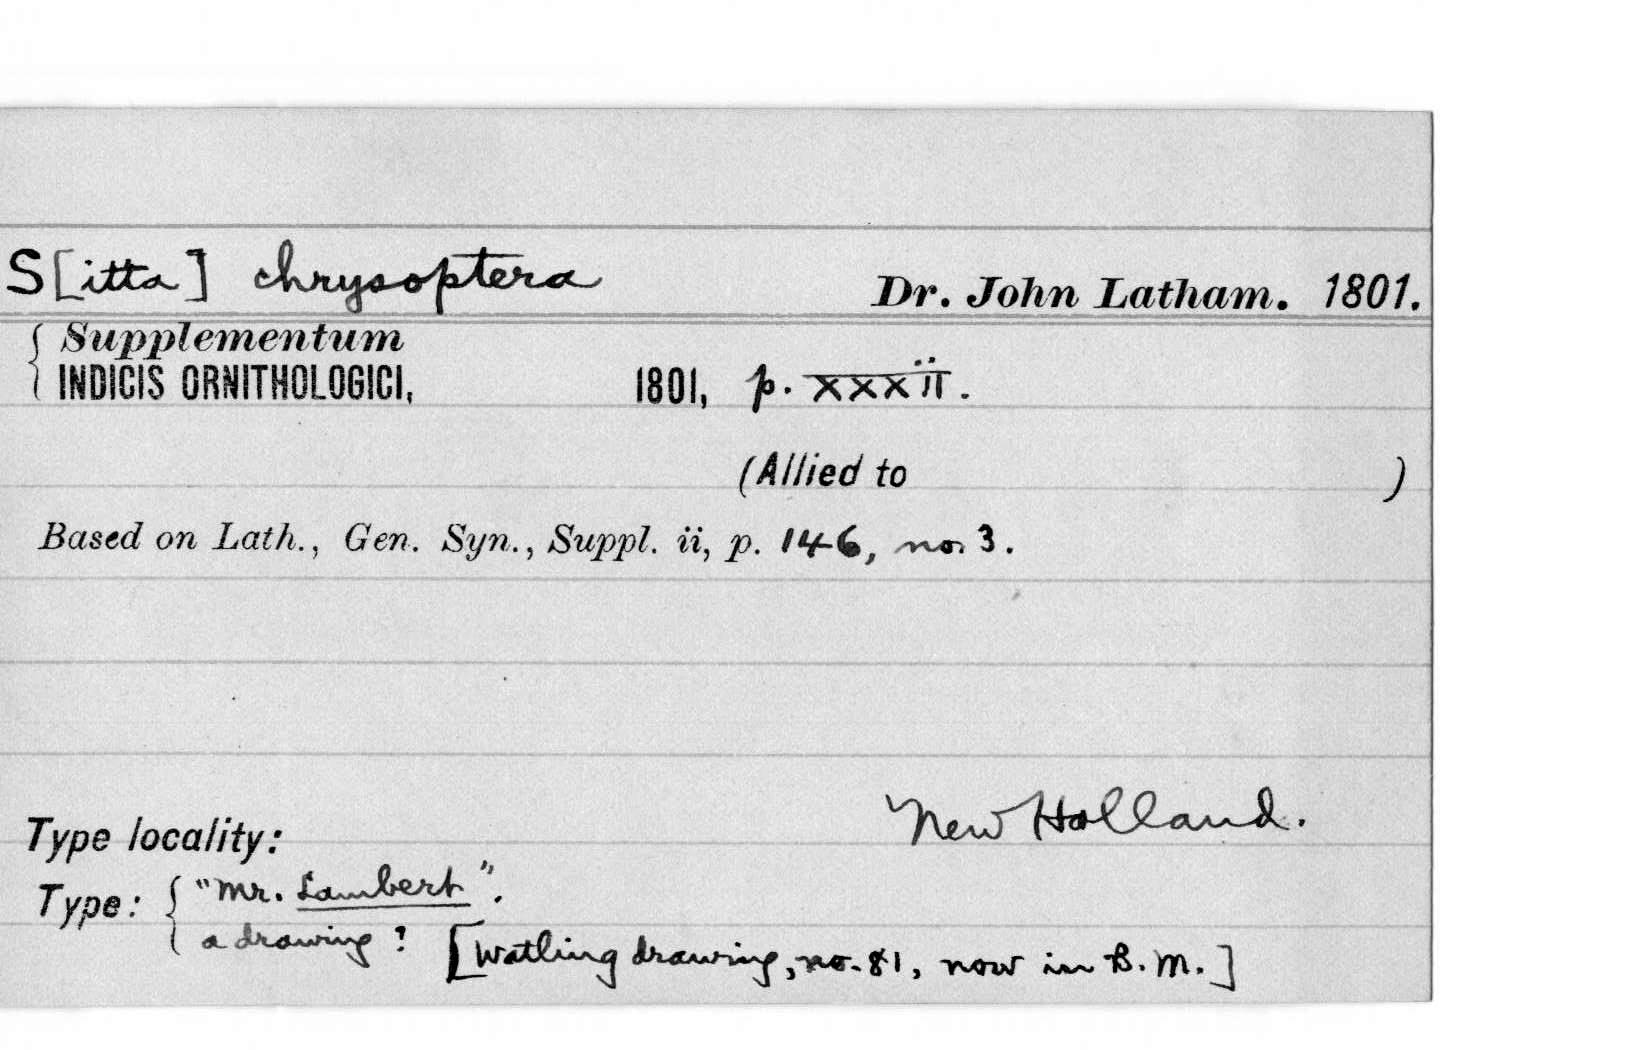 S[itta] chrysoptera Dr. John Latham. 1801.
{ Supplementum
INDICIS ORNITHOLOGICI, 1801, p. xxxii.
(Allied to )
Based on Lath., Gen. Syn., Suppl. ii, p. 146, no. 3.
New Holland.
Type locality:
Type: { "Mr. Lambert".
a drawing? [Watling drawing, no. 81, now in B.M.]